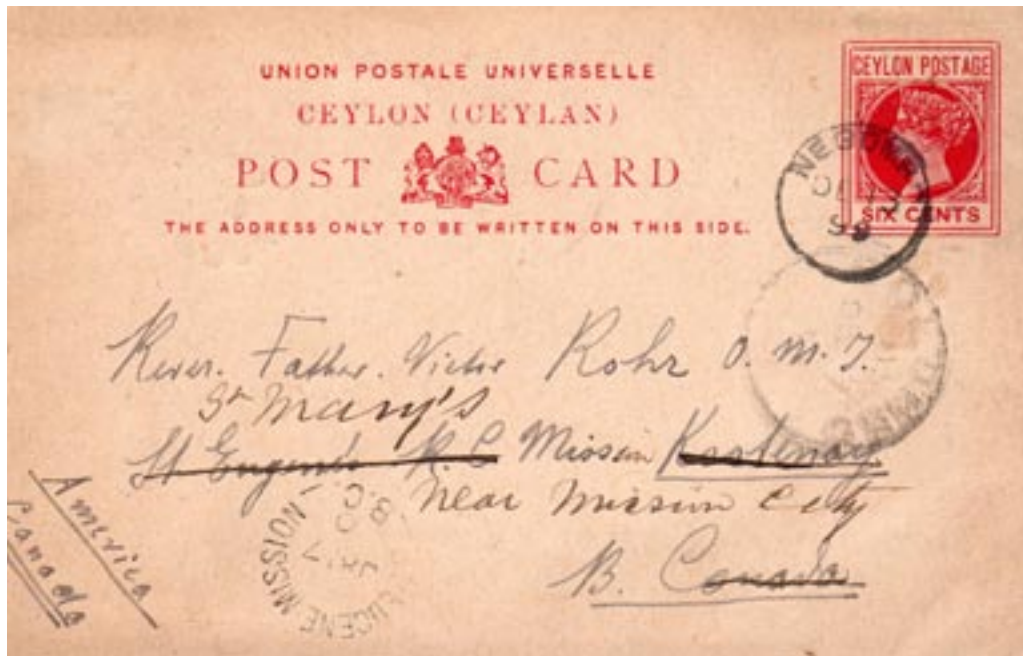 UNION POSTALE UNIVERSELLE
CEYLON (CEYLAN)
POST CARD
THE ADDRESS ONLY TO BE WRITTEN ON THIS SIDE.
CEYLON POSTAGE
SIX CENTS
NEGOMBO
DE 13
99
Rever. Father. Victor Rohr O. M. J.
St Mary's
St Eugene R. C Mission Kootenay
near Mission City
B. Canada
America
Canada
EUGENE MISSION
JA 17
00
B.C.